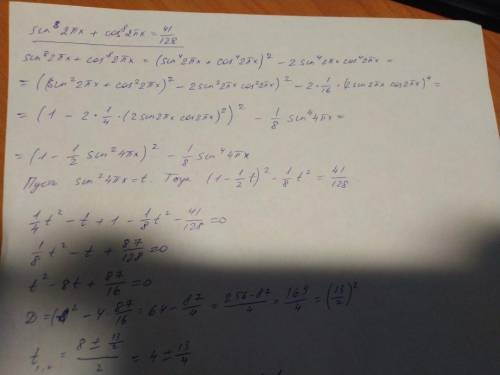 sin⁸ 2πx + cos⁸ 2πx = 41/128
sin⁸ 2πx + cos⁸ 2πx = (sin⁴ 2πx + cos⁴ 2πx)² - 2 sin⁴ 2πx cos⁴ 2πx =
= ((sin² 2πx + cos² 2πx)² - 2 sin² 2πx cos² 2πx)² - 2 · 1/16 · (2 sin 2πx cos 2πx)⁴ =
= (1 - 2 · 1/4 · (2 sin 2πx cos 2πx)²)² - 1/8 sin⁴ 4πx =
= (1 - 1/2 sin² 4πx)² - 1/8 sin⁴ 4πx
Пусть sin² 4πx = t. Тогда (1 - 1/2 t)² - 1/8 t² = 41/128.
1/4 t² - t + 1 - 1/8 t² - 41/128 = 0
1/8 t² - t + 87/128 = 0
t² - 8t + 87/16 = 0
² - 4 · 87/16 = 64 - 87/4 = 256-87/4 = 169/4 = (13/2)²
t₁,₂ = 8 ± 13/2 / 2 = 4 ± 13/4